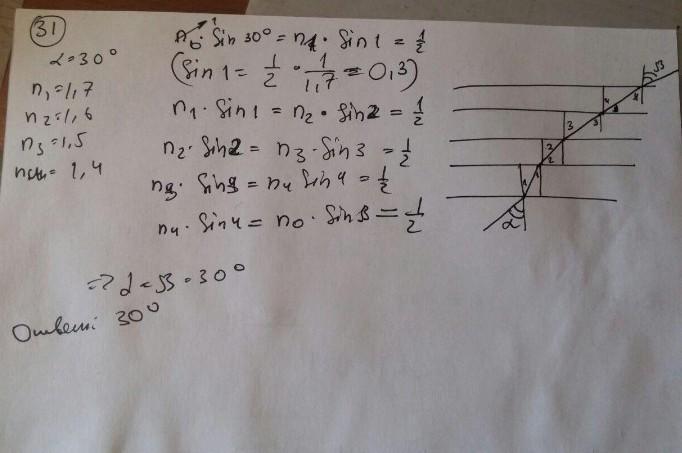 31
α=30°
n₁=1,7
n₂=1,6
n₃=1,5
n₄= 1,4
n₀ · Sin 30° = n₁ · Sin 1 = 1/2
(Sin 1 = 1/2 · 1/1,7 = 0,3)
n₁ · Sin 1 = n₂ · Sin 2 = 1/2
n₂ · Sin 2 = n₃ · Sin 3 = 1/2
n₃ · Sin 3 = n₄ Sin 4 = 1/2
n₄ · Sin 4 = n₀ · Sin β = 1/2
=> α = β = 30°
Ответ: 30°
β
4
4
3
3
3
2
2
1
1
α